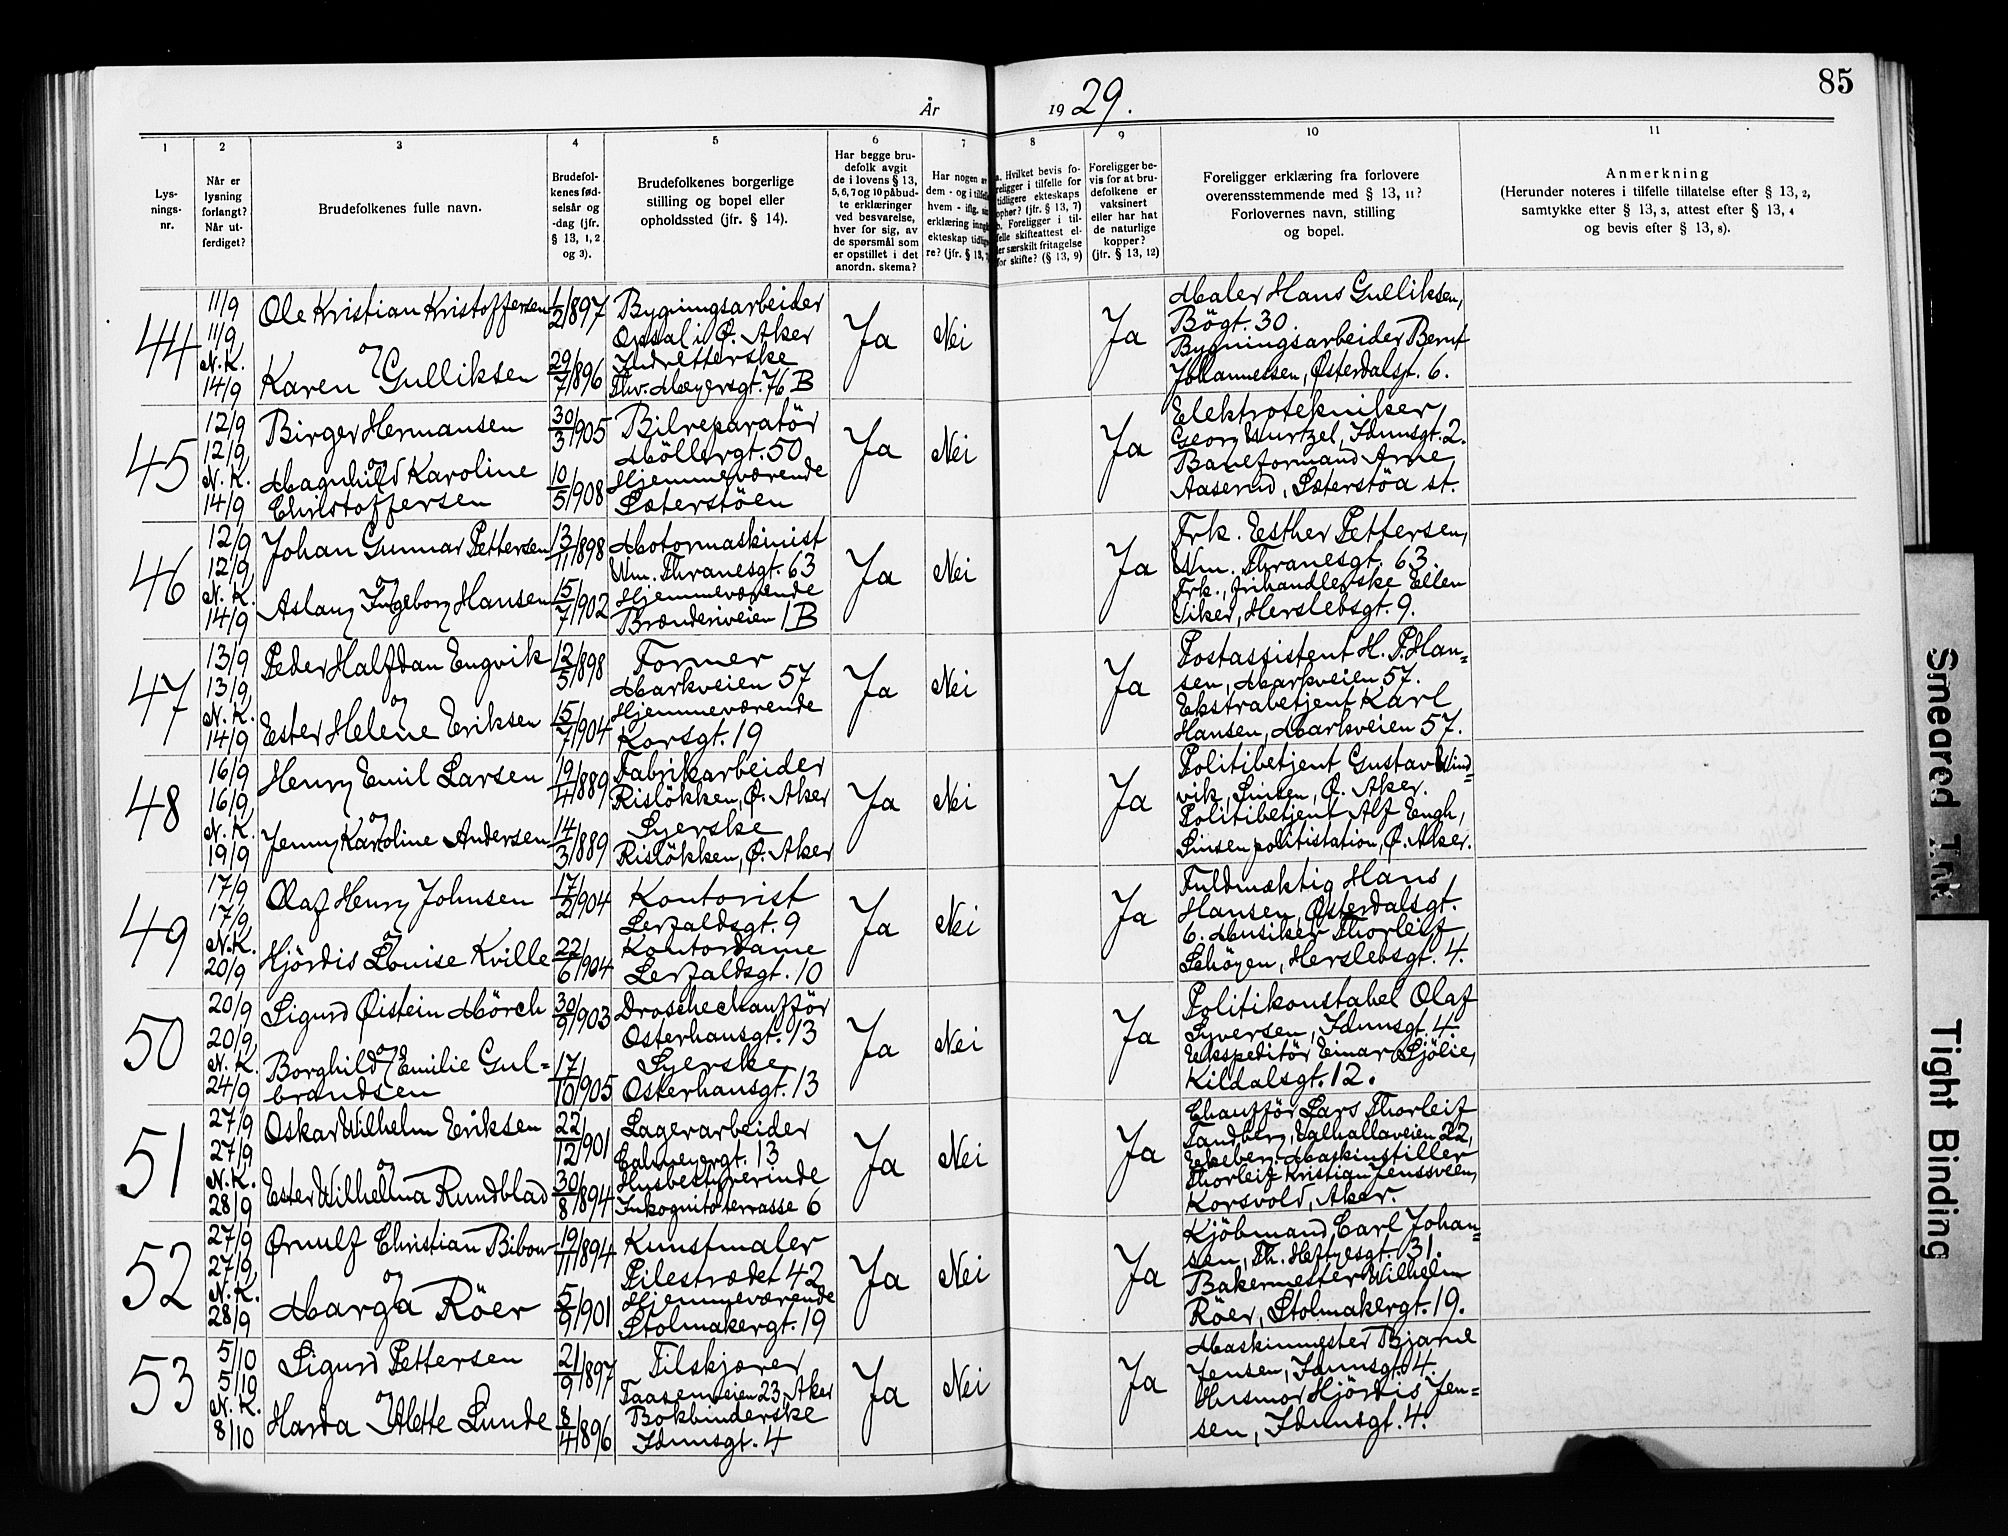 85
År 1929.
1 2 3 4 5 6 7 8 9 10 11
Lys-
nings-
nr.
Når er
lysning
forlangt?
Når ut-
ferdiget?
Brudefolkenes fulle navn.
Brudefol-
kenes fød-
selsår og
-dag (jfr.
§ 13, 1, 2
og 3).
Brudefolkenes borgerlige
stilling og bopel eller
opholdssted (jfr. § 14).
Har begge bru-
defolk avgit
de i lovens § 13,
5, 6, 7 og 10 påbud-
te erklæringer
ved besvarelse,
hver for sig, av
de spørsmål som
er opstillet i det
anordn. skema?
Har nogen av
dem - og i tilfelle
hvem - iflg. sin
erklæring inngått
ekteskap tidlige-
re? (jfr. § 13, 7)
a. Hvilket bevis fo-
religger i tilfelle for
tidligere ekteskaps
ophør? (jfr. § 13, 7)
b. Foreligger i til-
felle skifteattest el-
ler særskilt fritagelse
for skifte? (§ 13, 9)
Foreligger be-
vis for at bru-
defolkene er
vaksinert
eller har hat
de naturlige
kopper?
(jfr. § 13, 12)
Foreligger erklæring fra forlovere
overensstemmende med § 13, 11?
Forlovernes navn, stilling
og bopel.
Anmerkning
(Herunder noteres i tilfelle tillatelse efter § 13, 2,
samtykke etter § 13, 3, attest efter § 13, 4
og bevis efter § 13, 8).
44
11/9
11/9
N.K.
14/9
Ole Kristian Kristoffersen
og
Karen Gulliksen
1/2 1897
29/7 1896
Bygningsarbeider
Opsal i Ø. Aker
Indretterske
Thv. Meyersgt. 76 B
Ja
Nei
Ja
Maler Hans Gulliksen,
Bögt. 30.
Bygningsarbeider Bernt
Johannessen, Østerdalsgt. 6.
45
12/9
12/9
N.K.
14/9
Birger Hermansen
og
Magnhild Karoline
Christoffersen
30/3 1905
10/5 1908
Bilreparatör
Möllergt. 50
Hjemmeværende
Sæterstöen
Ja
Nei
Ja
Elektrotekniker
Georg Wurtzel, Idunsgt. 2.
Baneformand Arne
Aaserud, Sæterstöa st.
46
12/9
12/9
N.K.
14/9
Johan Gunnar Pettersen
og
Aslaug Ingeborg Hansen
13/11 1898
15/7 1902
Motormaskinist
Wm. Thranesgt. 63
Hjemmeværende
Brænderiveien 1 B
Ja
Nei
Ja
Frk. Esther Pettersen,
Wm. Thranesgt. 63.
Frk., frihandlerske Ellen
Viker, Herslebsgt. 9.
47
13/9
13/9
N.K.
14/9
Peder Halfdan Engvik
og
Ester Helene Eriksen
12/5 1898
15/7 1904
Former
Markveien 57
Hjemmeværende
Korsgt. 19
Ja
Nei
Ja
Postassistent H. P. Han-
sen, Markveien 57.
Ekstrabetjent Karl
Hansen, Markveien 57.
48
16/9
16/9
N.K.
19/9
Henry Emil Larsen
og
Jenny Karoline Andersen
19/4 1889
14/3 1889
Fabrikarbeider
Rislökken, Ø. Aker
Syerske
Rislökken, Ø. Aker
Ja
Nei
Ja
Politibetjent Gustav Wind-
vik, Sinsen, Ø. Aker.
Politibetjent Alf Engh,
Sinsen politistation, Ø. Aker.
49
17/9
17/9
N.K.
20/9
Olaf Henry Johnsen
og
Hjördis Louise Kville
17/2 1904
22/6 1904
Kontorist
Seilduksgt. 9
Kontordame
Seilduksgt. 10
Ja
Nei
Ja
Fuldmæktig Hans
Hansen, Østerdalsgt.
6. Musiker Thorleif
Schöyen, Herslebsgt. 4.
50
20/9
20/9
N.K.
24/9
Sigurd Øistein Mörch
og
Borghild Emilie Gul-
brandsen
30/9 1903
17/10 1905
Droschechaufför
Osterhausgt. 13
Syerske
Osterhausgt. 13
Ja
Nei
Ja
Politikonstabel Olaf
Syversen, Idunsgt. 4.
Ekspeditör Einar Sjölie,
Kildalsgt. 12.
51
27/9
27/9
N.K.
28/9
Oskar Wilhelm Eriksen
og
Ester Wilhelma Rundblad
22/12 1901
30/8 1894
Lagerarbeider
Calmeyergt. 13
Husbestyrerinde
Inkognitoterrasse 6
Ja
Nei
Ja
Chaufför Lars Thorleif
Tandberg, Valhallaveien 22,
Ekeberg. Maskinstiller
Thorleif Kristian Jenssveen,
Korsvold, Aker.
52
27/9
27/9
N.K.
28/9
Ørnulf Christian Bibow
og
Marga Röer
19/11 1894
5/9 1901
Kunstmaler
Pilestrædet 42
Hjemmeværende
Stolmakergt. 19
Ja
Nei
Ja
Kjöbmand Carl Johan-
sen, Th. Heftyesgt. 31.
Bakermester Wilhelm
Röer, Stolmakergt. 19.
53
5/10
5/10
N.K.
8/10
Sigurd Pettersen
og
Harda Alette Lunde
21/9 1897
8/4 1896
Tilskjærer
Taasenveien 23, Aker
Bokbinderske
Idunsgt. 4
Ja
Nei
Ja
Maskinmester Bjarne
Jensen, Idunsgt. 4.
Husmor Hjördis Jen-
sen, Idunsgt. 4.
Smeared Ink
Tight Binding